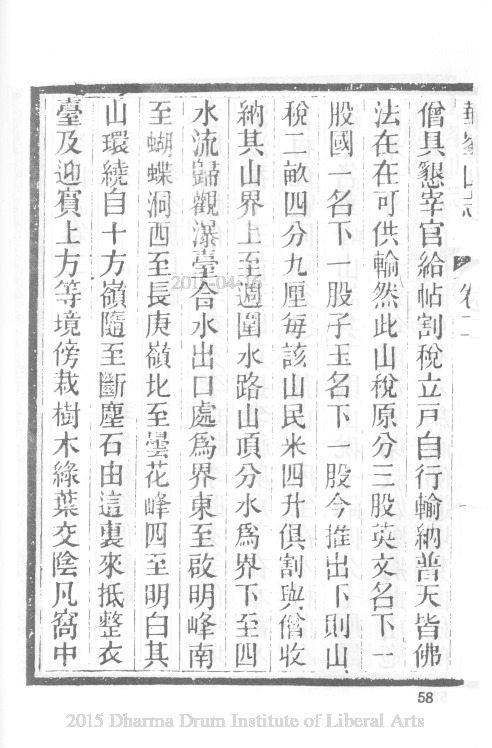 華峯山志 卷二
僧具懇宰官給帖割稅立戶自行輸納普天皆佛
法在在可供輸然此山稅原分三股英文名下一
股國一名下一股子玉名下一股今推出下則山
稅二畝四分九厘每該山民米四升俱割與僧收
納其山界上至週圍水路山頂分水為界下至四
水流歸觀瀑臺合水出口處為界東至啟明峰南
至蝴蝶洞西至長庚嶺北至曇花峰四至明白其
山環繞自十方嶺隨至斷塵石由這裏來抵整衣
臺及迎賓上方等境傍栽樹木綠葉交陰凡窩中
58
2015 Dharma Drum Institute of Liberal Arts